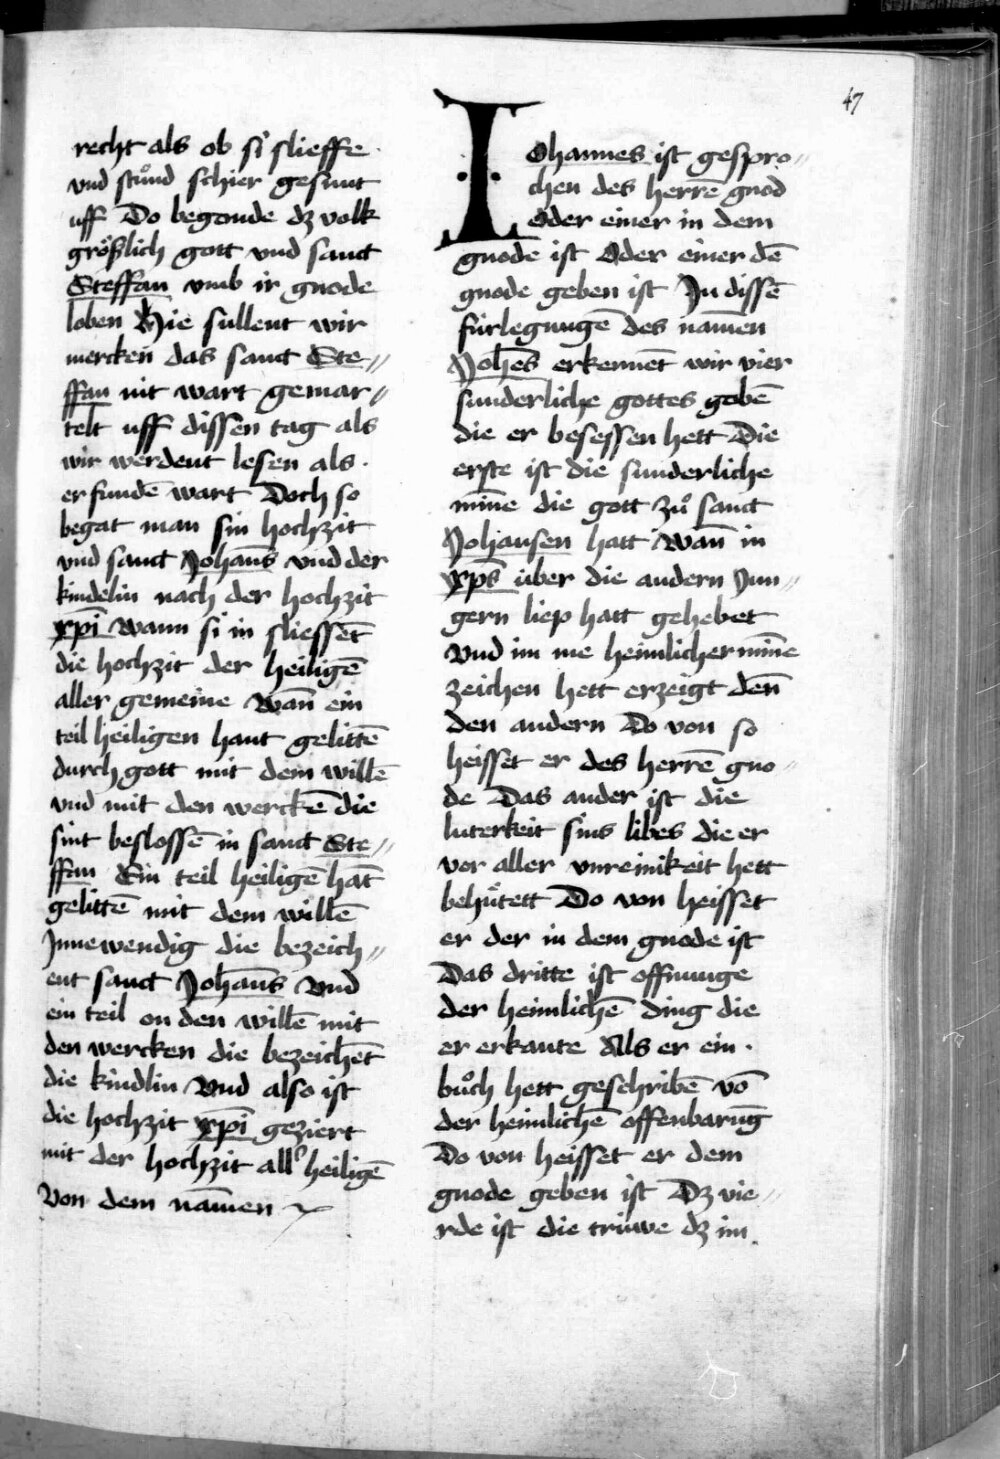 47
recht als ob si slieffe
vnd stuͦnd schier gesunt
uff Do begonde dz volk
groͤßlich gott vnd sanct
Steffan vmb ir gnode
loben Hie sullent wir
mercken das sanct Ste〃
ffan nit wart gemar〃
telt uff dissen tag als
wir werdent lesen als
er fundē wart Doch so
begat man sin hochzit
vnd sanct Johans̄ vnd der
kindelin nach der hochzit
xp̄i Wann si in sliessēt
die hochzit der heiligē
aller gemeine Wan̄ ein
teil heiligen hant gelittē
durch gott mit dem willē
vnd mit den werckē die
sint beslossē in sanct Ste〃
ffan Ein teil heiligē hat̄
gelittē mit dem willē
Innewendig die bezeich〃
ent sanct Johans̄ Vnd
ein teil on den willē mit
den wercken die bezeichēt
die kindlin Vnd also ist
die hochzit xp̄i geziert
mit der hochzit all' heiligē
Von dem nam̄en
Iohannes ist gespro〃
chen des herrē gnod
Oder einer in dem
gnode ist Oder einer dē
gnode geben ist In dissē
fürlegungē des nam̄en
Joh̄es erkennēt wir vier
sunderliche gottes gobē
die er besessen hett Die
erste ist die sunderliche
min̄e die gott zuͦ sanct
Johansen hatt Wan̄ in
xp̄s über die andern Jun〃
gern liep hatt gehebet
Vnd im me heimlicher min̄e
zeichen hett erzeigt den̄
den andern Do von so
heisset er des herrē gno〃
de Das ander ist die
luterkeit sins libes die er
vor aller vnreinikeit hett
behuͤtett Do von heisset
er der in dem gnode ist
Das dritte ist offnunge
der heimlichē ding die
er erkante Als er ein
buͦch hett geschribē vō
der heimlichē offenbarūg
Do von heisset er dem
gnode geben ist Dz vie〃
rde ist die trüwe dz im